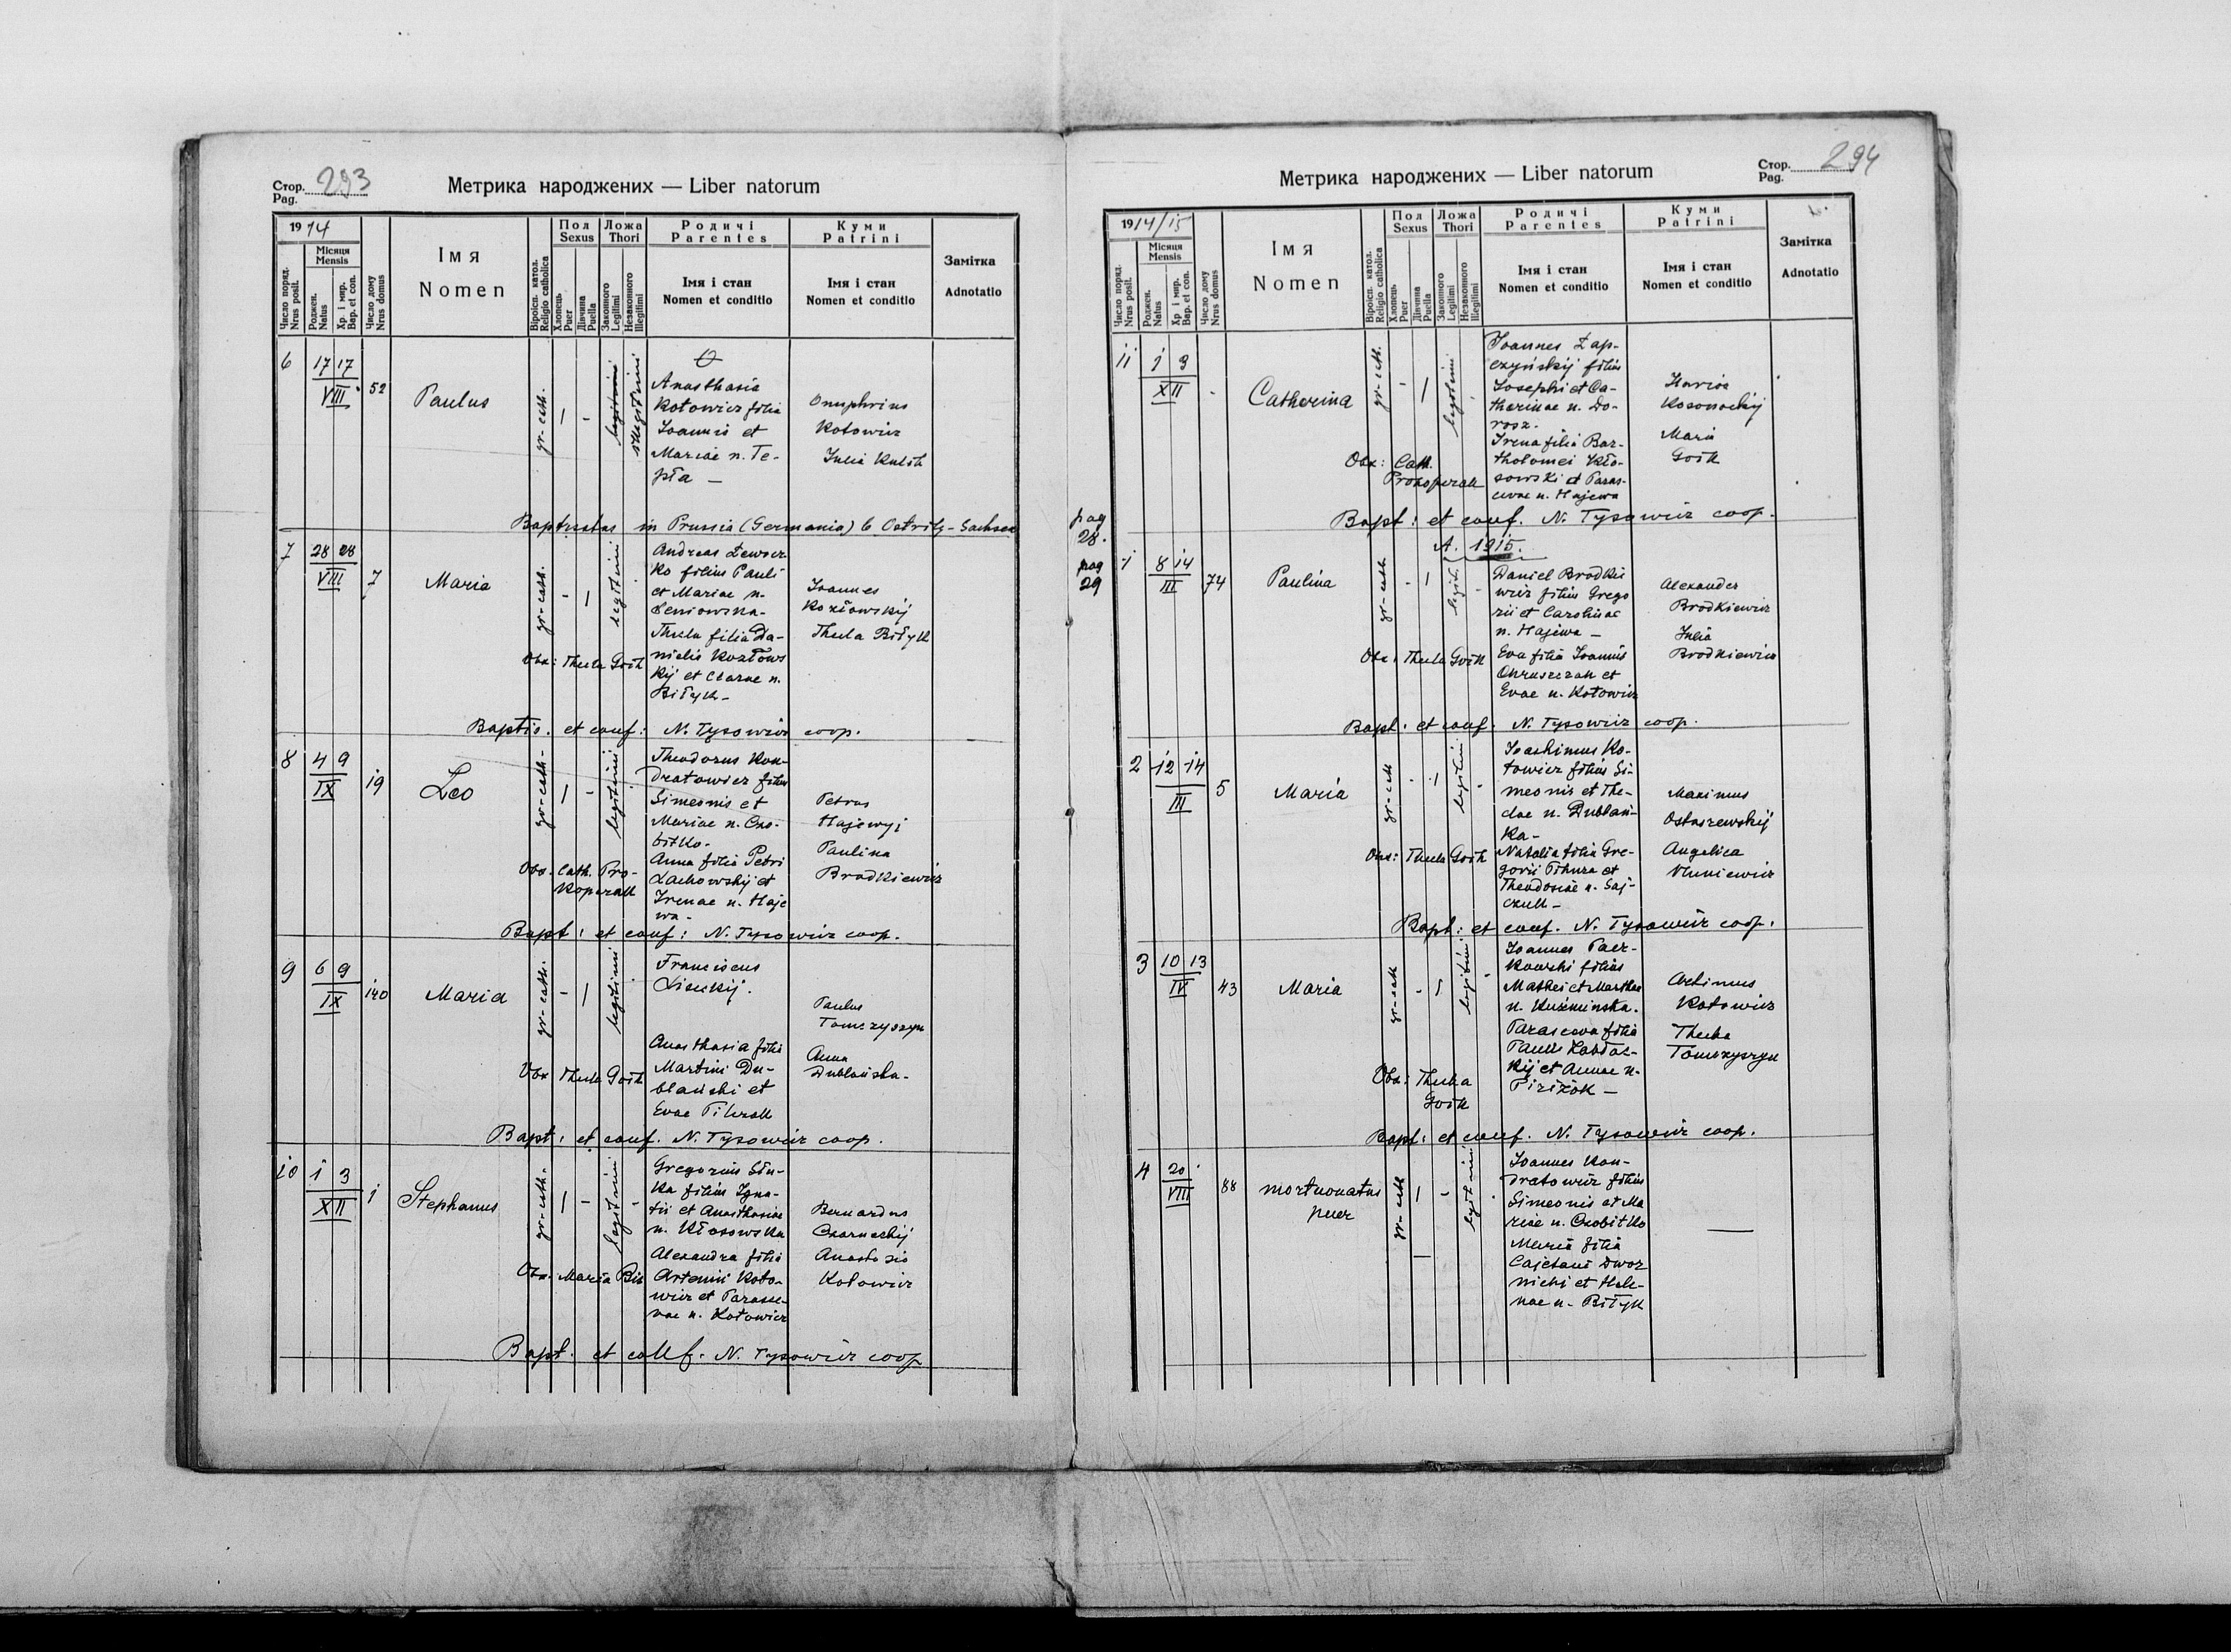 Стор. 293
Pag.
Метрика народжених — Liber natorum
19 14
Місяця
Mensis
Число поряд.
Nrus posit.
Роджен.
Natus
Хр. і мир.
Bap. et con.
Число дому
Nrus domus
Імя
Nomen
Віроісп. катол.
Religio catholica
Пол
Sexus
Хлопець
Puer
Дівчина
Puella
Ложа
Thori
Законного
Legitimi
Незаконного
Illegitimi
Родичі
Parentes
Імя і стан
Nomen et conditio
Куми
Patrini
Імя і стан
Nomen et conditio
Замітка
Adnotatio
6 17 17 VIII 52 Paulus gr-cath. legitimi illegitimi
Anasthasia
Kotowicz filia
Joannis et
Mariae n. Te-
pła —
Onuphrius
Kotowicz
Julia Kulik
Baptisatus in Prussia (Germania) b Ostritz - Sachsen
7 28 28 VIII 7 Maria gr-cath. legitimi
Andreas Lewic-
ko filius Pauli
et Mariae n.
Seniowska-
Thecla filia Da-
nielis Kozłows
kij et Clarae n.
Biłyk-
Joannes
Kozłowskij
Thecla Biłyk
Obx: Thecla Goik
Baptis. et conf: N. Tysowicz coop.
8 4 9 IX 19 Leo gr-cath. legitimi
Theodorus Kon-
dratowicz filius
Simeonis et
Mariae n. Czo-
bitko-
Anna filia Petri
Lachowskij et
Irenae n. Haje
wa-
Petrus
Hajewyj
Paulina
Brodkiewicz
Obx. Cath. Pro-
kopczak
Bapt: et conf: N. Tysowicz coop.
9 6 9 IX 140 Maria gr-cath. legitimi
Franciscus
Lisickij.
Anasthasia filia
Martini Du-
blański et
Evae Tihczak
Paulus
Tomczyszyn
Anna
Dublańska-
Obx Thecla Goik
Bapt: et conf. N. Tysowicz coop.
10 1 3 XII 1 Stephanus gr-cath. legitimi
Gregorius Słu-
ka filius Igna-
tii et Anasthasiae
n. Kłosowska
Alexandra filia
Artemii Koto-
wicz et Parasce-
vae n. Kotowicz
Bernardus
Czarneckij
Anastasia
Kotowicz
Obx. Maria Bis
Bapt. et conf. N. Tysowicz coop
Стор. 294
Pag.
Метрика народжених — Liber natorum
19 14/15
Місяця
Mensis
Число поряд.
Nrus posit.
Роджен.
Natus
Хр і мир.
Bap. et con.
Число дому
Nrus domus
Імя
Nomen
Віроісп. катол.
Religio catholica
Пол
Sexus
Хлопець
Puer
Дівчина
Puella
Ложа
Thori
Законного
Legitimi
Незаконного
Illegitimi
Родичі
Parentes
Імя і стан
Nomen et conditio
Куми
Patrini
Імя і стан
Nomen et conditio
Замітка
Adnotatio
11 1 3 XII - Catherina gr-cath. legitimi
Joannes Łap-
czyńskij filius
Josephi et Ca-
therinae n. Do-
rosz.
Irena filia Bar-
tholomei Kło-
sowski et Paras-
cevae n. Hajewa
Kosonockij
Maria
Goik
Obx: Cath.
Prokopczak
Bapt: et conf. N. Tysowicz coop.
pag
28.
A. 1915.
pag
29
1 8 14 III 74 Paulina gr-cath legit.
Daniel Brodkie
wicz filius Grego
rii et Carolinae
n. Hajewa —
Eva filia Joannis
Chruszczak et
Evae n. Kotowicz
Alexander
Brodkiewicz
Julia
Brodkiewicz
Obx: Thecla Goik
Bapt: et conf. N. Tysowicz coop.
2 12 14 III 5 Maria gr-cath legitimi
Joachimus Ko-
towicz filius Si-
meonis et The-
clae n. Dublań-
ka-
Natalia filia Gre-
gorii Tihura et
Theodosiae n. Saj-
czuk —
Maximus
Ostaszewskij
Angelica
Obx: Thecla Goik
Bapt: et conf. N. Tysowicz coop.
3 10 13 IV 43 Maria gr-cath legitimi
Joannes Pacz-
kowski filius
Mathei et Marthae
n. Kuźmińska.
Parasceva filia
Pauli
kij et Annae n.
Pirizok —
Kotowicz
Thecla
Tomczyszyn
Obx: Thecla
Goik
Bapt: et conf. N. Tysowicz coop.
4 20 VIII 88 mortuonatus
puer
gr-cath legitimi
Joannes Kon-
dratowicz filius
Simeonis et Ma
riae n. Czobitko
Maria filia
Cajetani Dwor
nicki et Hele-
nae n. Biłyk
—